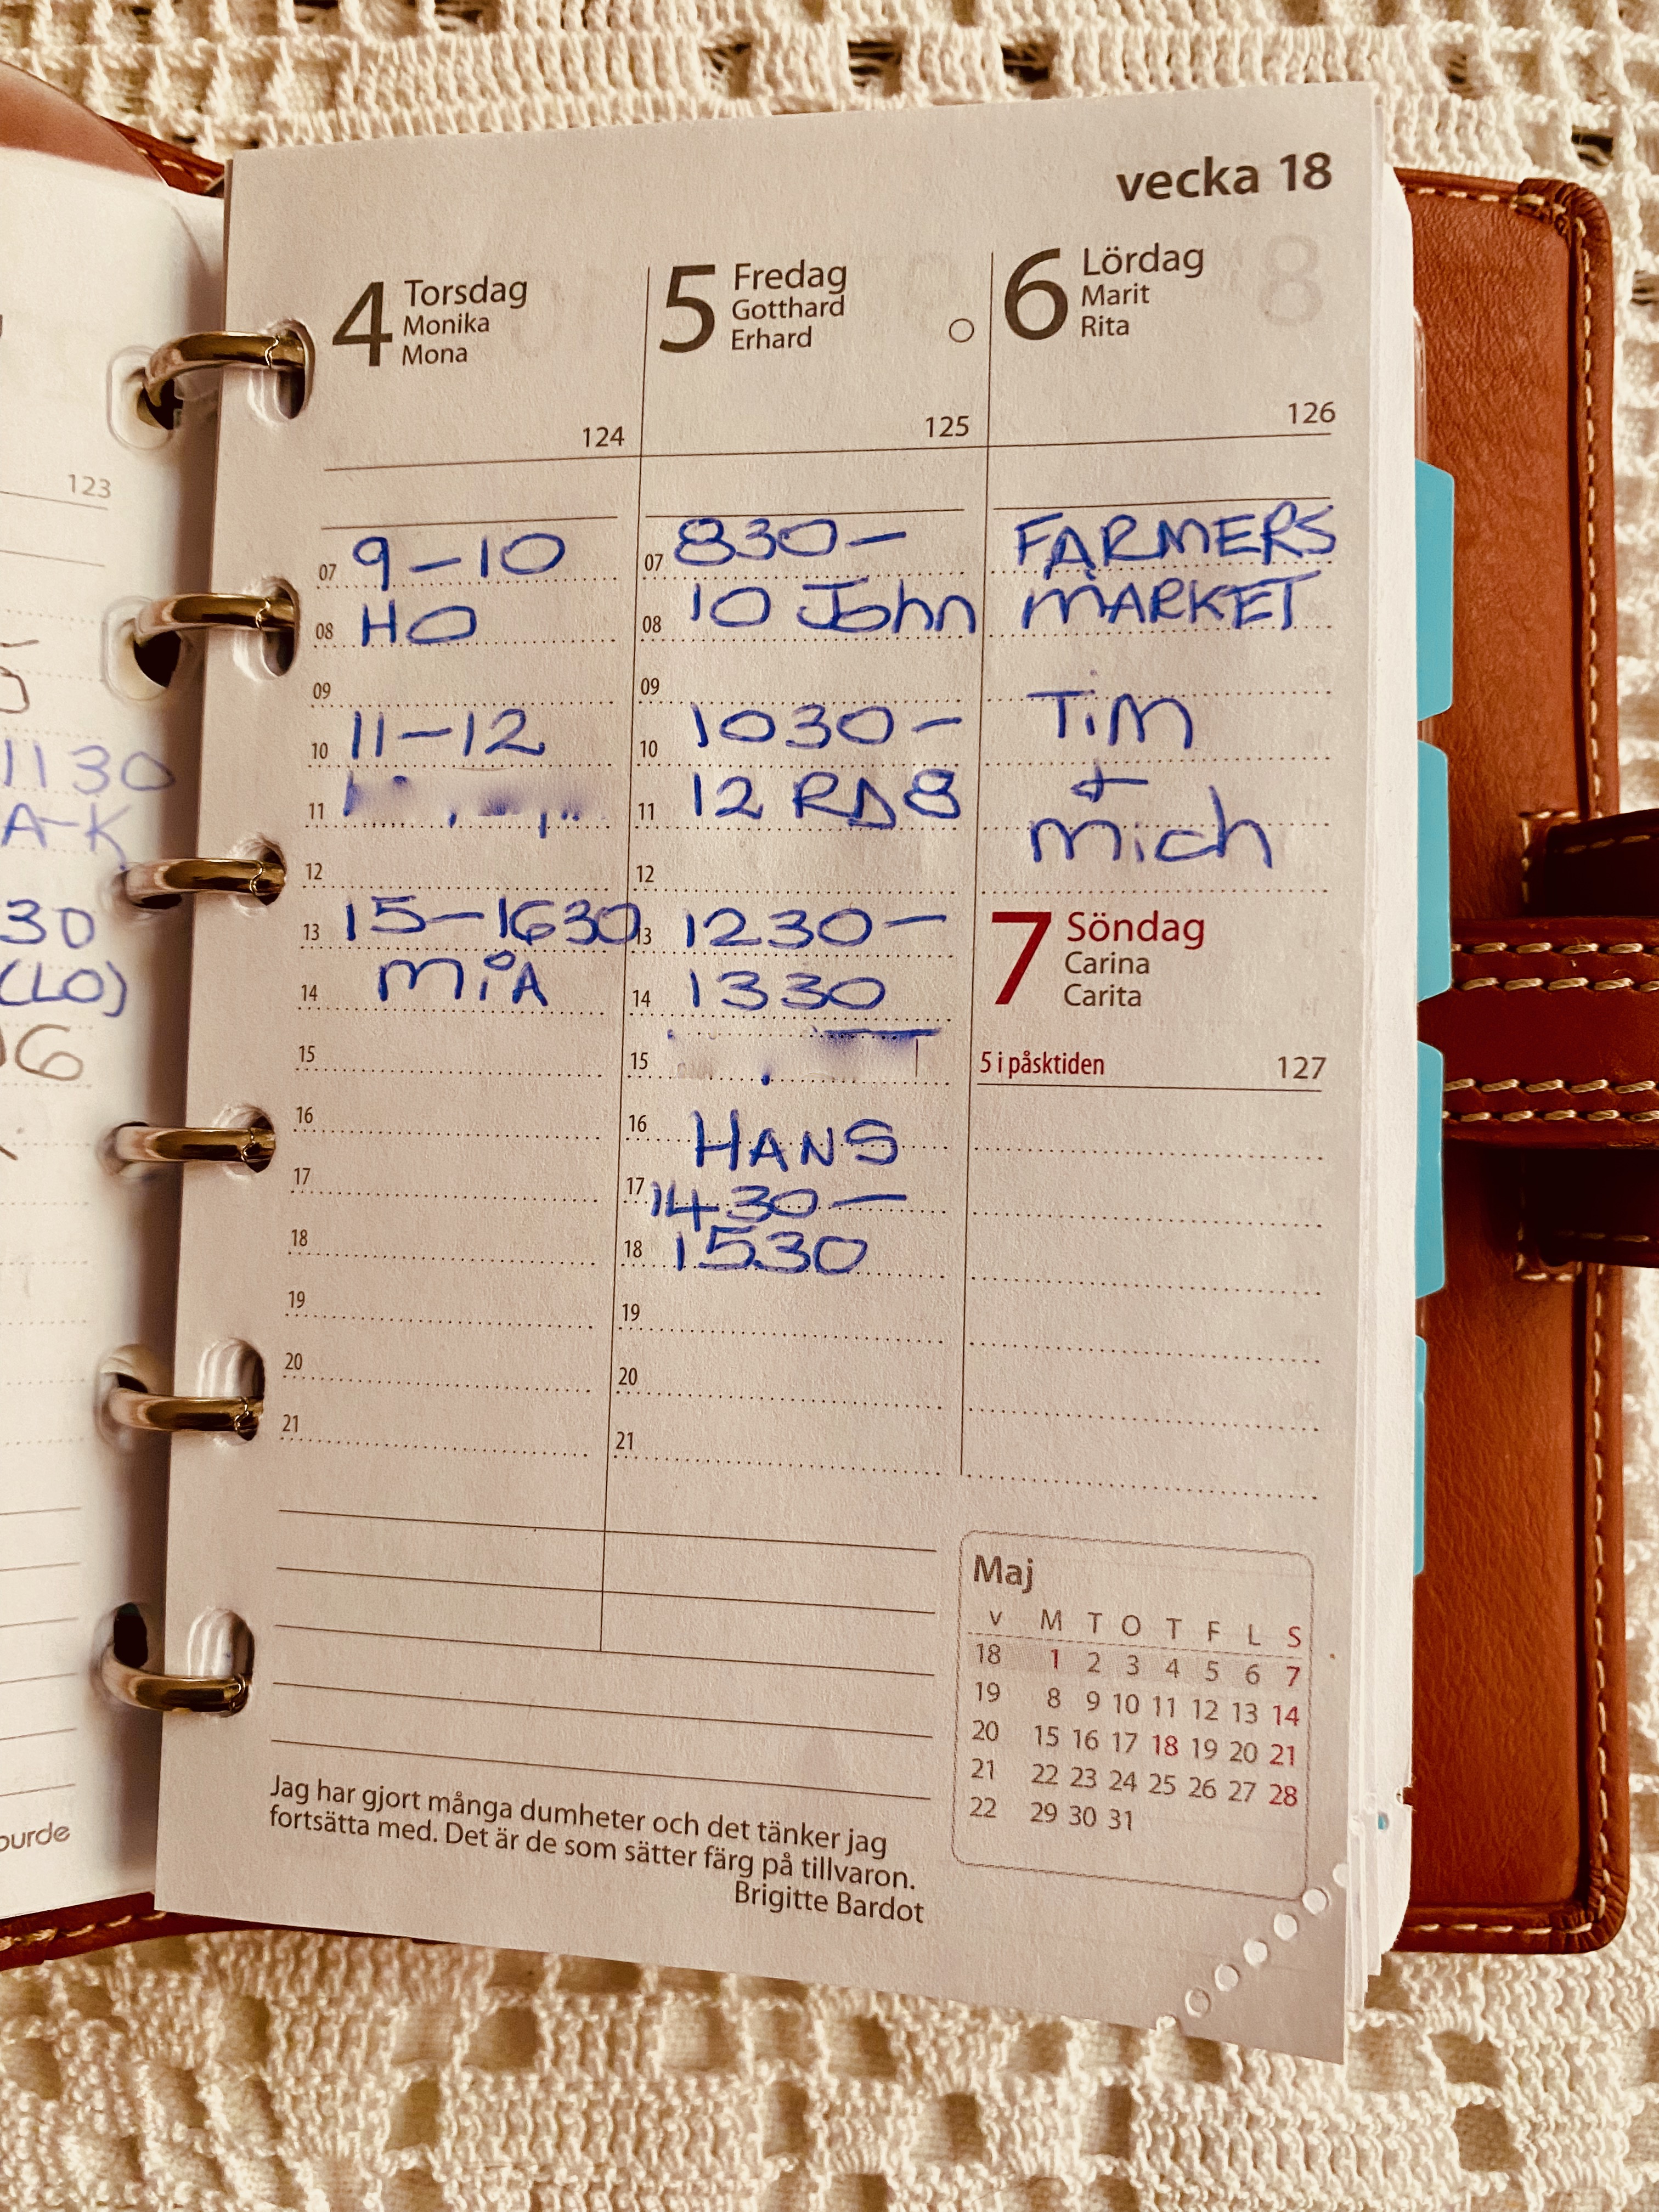 123
1130
A-K
30
(LO)
06
ourde
vecka 18
4 Torsdag
Monika
Mona
124
07 9-10
08 HO
09
10 11-12
11
12
13 15-1630
14 MiA
15
16
17
18
19
20
21
5 Fredag
Gotthard
Erhard
125
07 830-
08 10 John
09
10 1030-
11 12
12
13 1230-
14 1330
15
16 HANS
17 1430-
18 1530
19
20
21
6 Lördag
Marit
Rita
126
FARMERS
MARKET
TiM
+
Mich
7 Söndag
Carina
Carita
5 i påsktiden 127
Maj
v M T O T F L S
18 1 2 3 4 5 6 7
19 8 9 10 11 12 13 14
20 15 16 17 18 19 20 21
21 22 23 24 25 26 27 28
22 29 30 31
Jag har gjort många dumheter och det tänker jag
fortsätta med. Det är de som sätter färg på tillvaron.
Brigitte Bardot